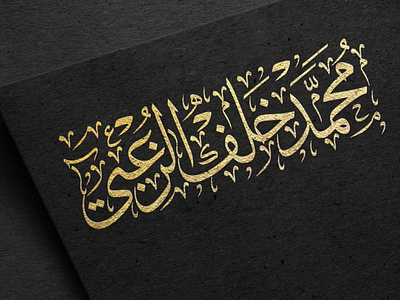 مُحَمَّد خَلَف الزُعبي